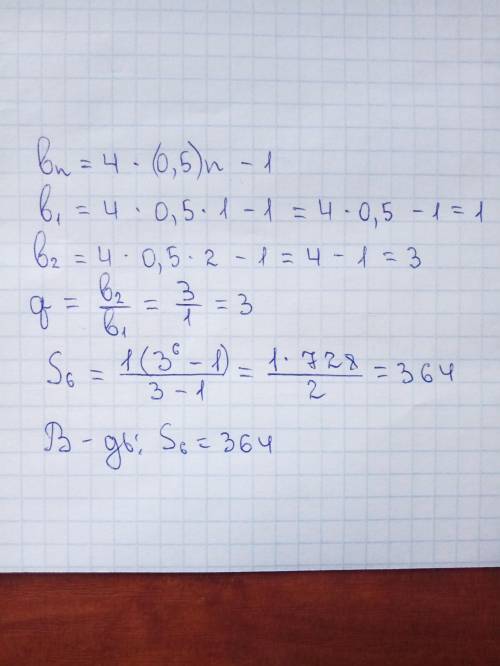 bₙ = 4 · (0,5)n - 1
b₁ = 4 · 0,5 · 1 - 1 = 4 · 0,5 - 1 = 1
b₂ = 4 · 0,5 · 2 - 1 = 4 - 1 = 3
q = b₂/b₁ = 3/1 = 3
S₆ = 1(3⁶ - 1)/3 - 1 = 1 · 728/2 = 364
В - дь: S₆ = 364